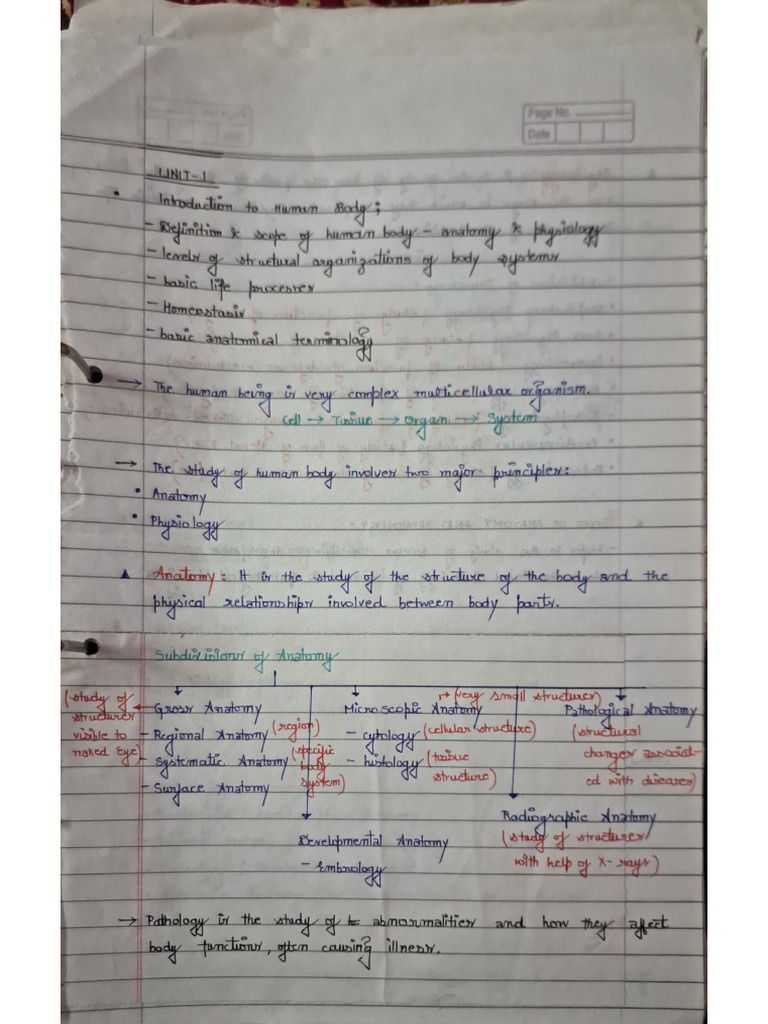 Page No.
Date
UNIT-1
• Introduction to Human Body;
- Definition & scope of human body - anatomy & physiology
- levels of structural organizations of body systems
- basic life processes
- Homeostasis
- basic anatomical terminology
→ The human being is very complex multicellular organism.
Cell → Tissue → Organ → System
→ The study of human body involves two major principles:
• Anatomy
• Physiology
▲ Anatomy: It is the study of the structure of the body and the
physical relationships involved between body parts.
Subdivisions of Anatomy
(study of structures visible to naked eye)
Gross Anatomy
- Regional Anatomy (region)
- Systematic Anatomy (specific body system)
- Surface Anatomy
Developmental Anatomy
- Embryology
Microscopic Anatomy → (very small structures)
- cytology (cellular structure)
- histology (tissue structure)
Radiographic Anatomy
(study of structures
with help of X-rays)
Pathological Anatomy
(structural
changes associat-
ed with diseases)
→ Pathology is the study of abnormalities and how they affect
body functions, often causing illness.